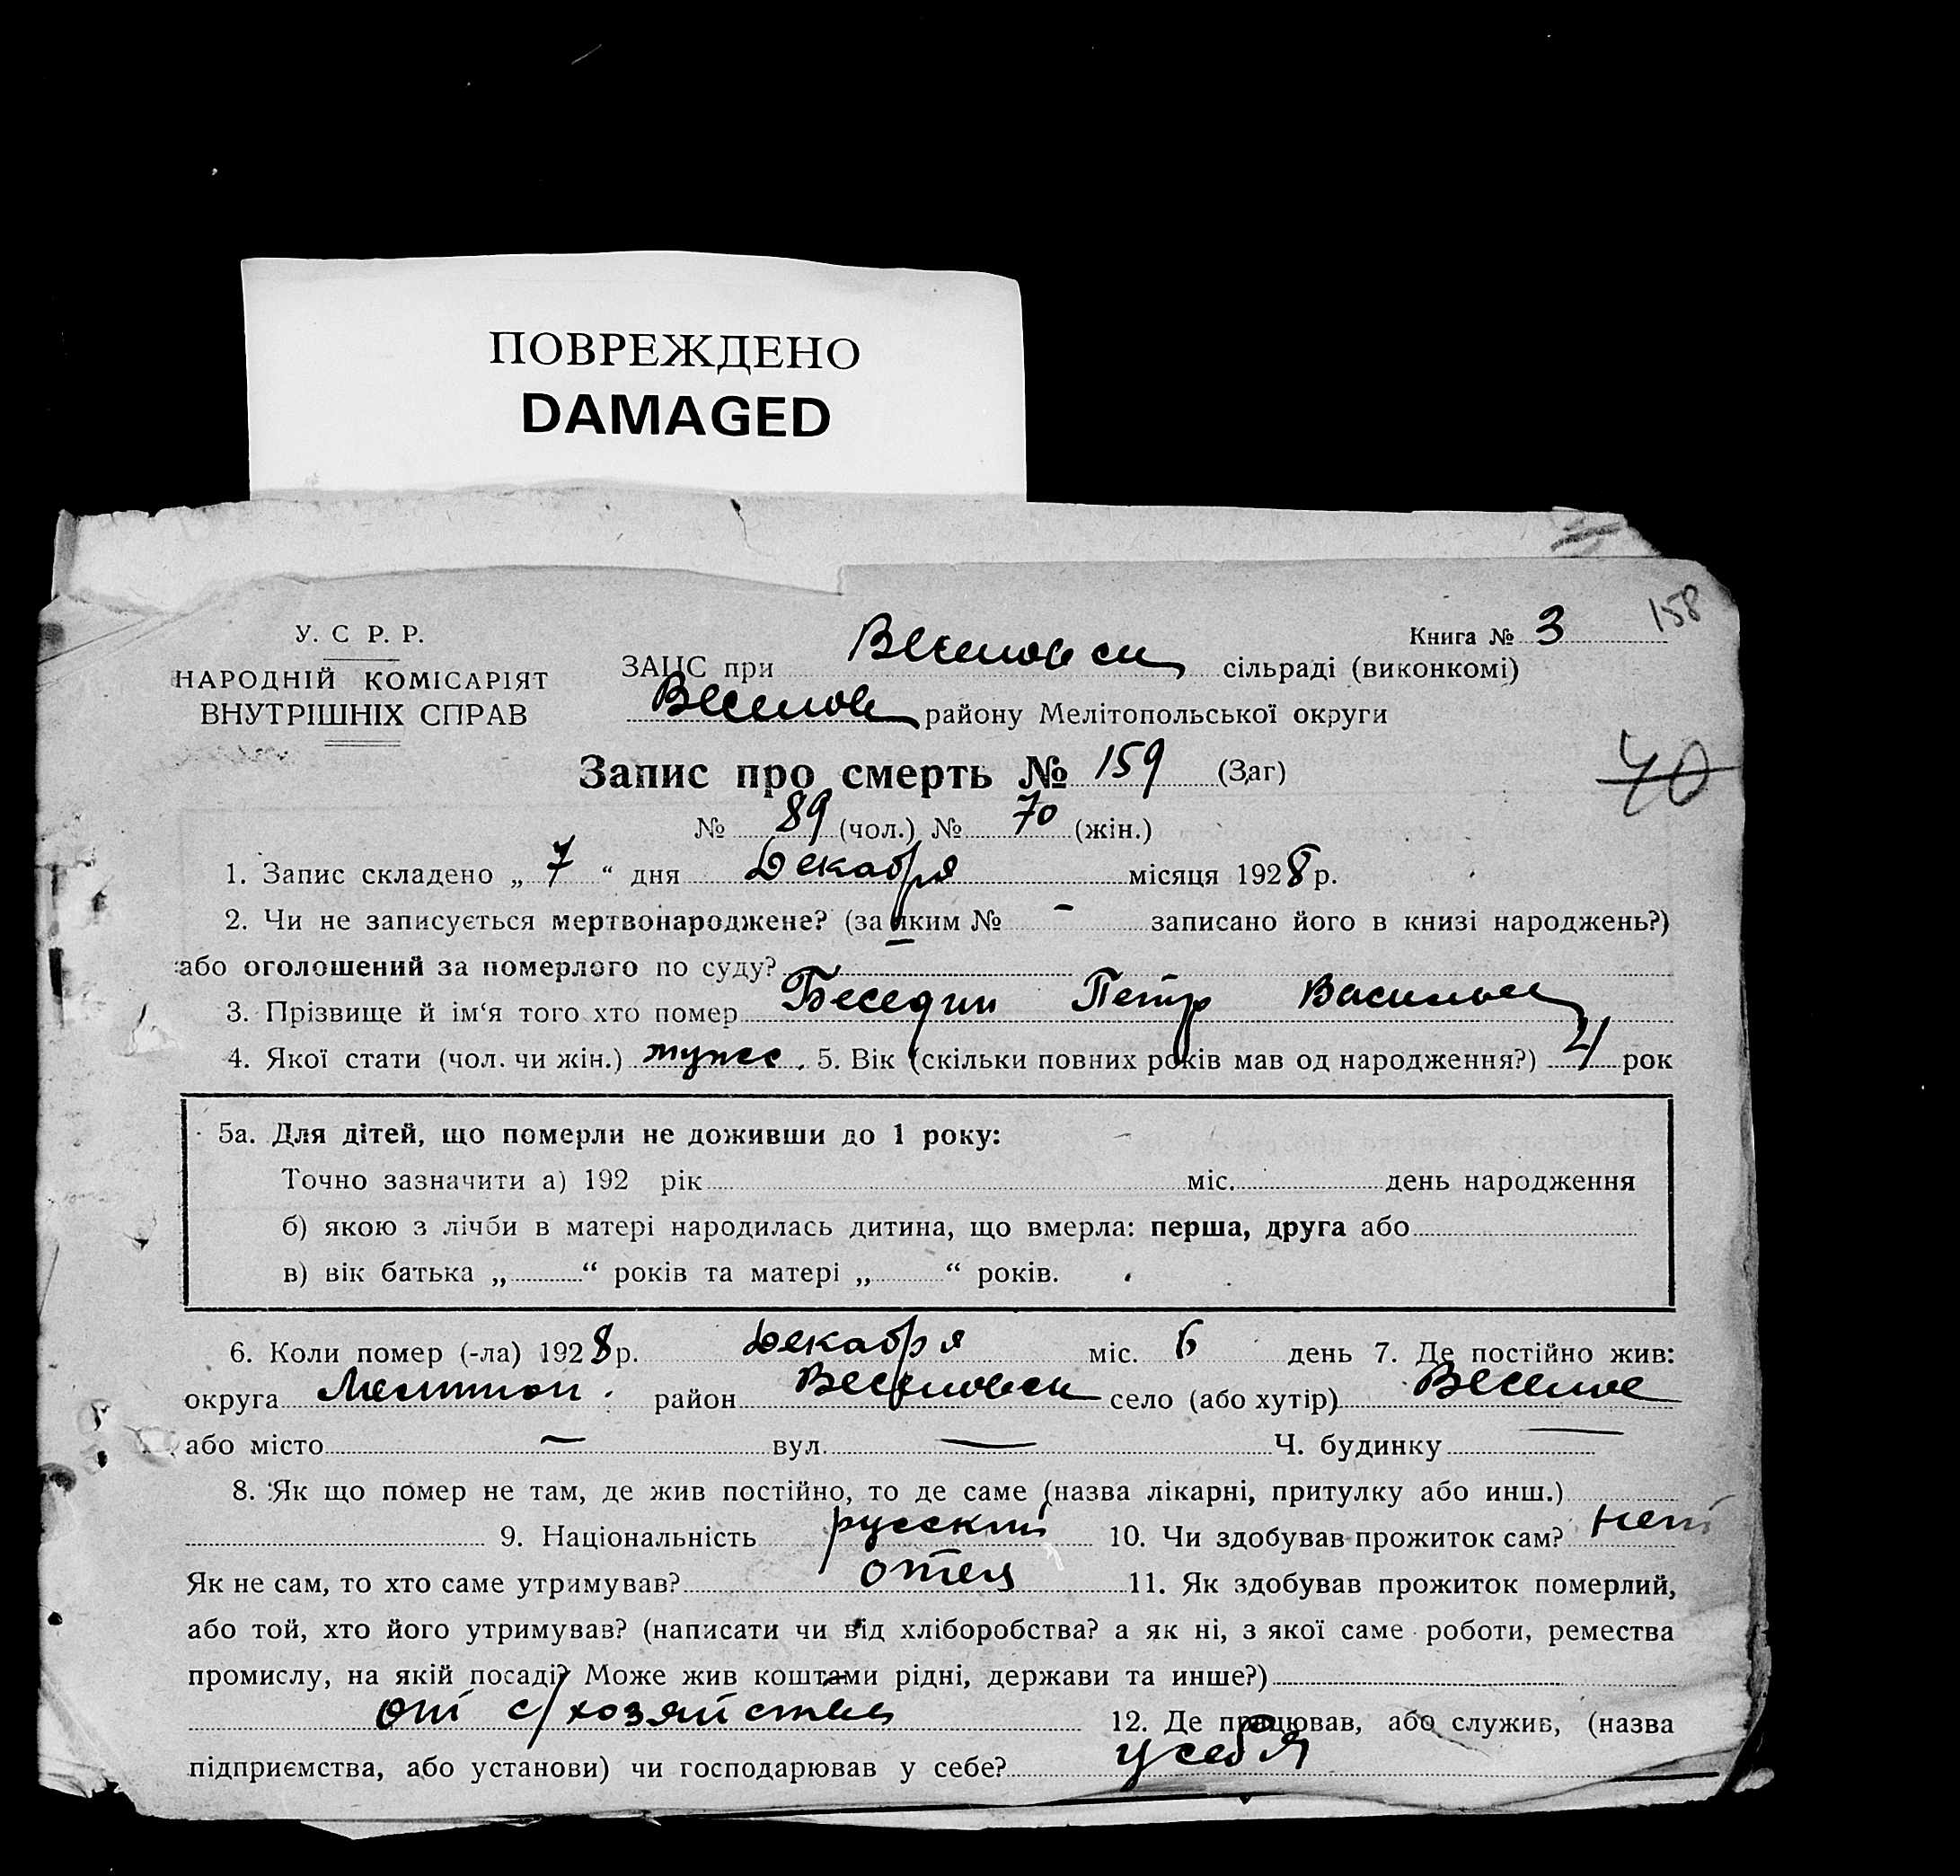 ПОВРЕЖДЕНО
DAMAGED
158
У. С Р. Р.
НАРОДНІЙ КОМІСАРІЯТ
ВНУТРІШНІХ СПРАВ
Книга № 3
ЗАЦС при Веселовск сільраді (виконкомі)
Веселов району Мелітопольської округи
Запис про смерть № 159 (Заг)
40
№ 89 (чол.) № 70 (жін.)
1. Запис складено „ 7 “ дня Декабря місяця 1928 р.
2. Чи не записується мертвонароджене? (за яким № - записано його в книзі народжень?)
або оголошений за померлого по суду? —
3. Прізвище й ім‘я того хто помер Беседин Петр Васильев
4. Якої стати (чол. чи жін.) мужск. 5. Вік (скільки повних років мав од народження?) 4 рок
5а. Для дітей, що померли не доживши до 1 року:
Точно зазначити а) 192 рік міс. день народження
б) якою з лічби в матері народилась дитина, що вмерла: перша, друга або
в) вік батька „ “ років та матері „ “ років.
6. Коли помер (-ла) 1928 р. Декабря міс. 6 день 7. Де постійно жив:
округа Мелитоп. район Веселовск село (або хутір) Веселое
або місто — вул. — Ч. будинку —
8. Як що помер не там, де жив постійно, то де саме (назва лікарні, притулку або инш.)
9. Національність русский 10. Чи здобував прожиток сам? нет
Як не сам, то хто саме утримував? отец 11. Як здобував прожиток померлий,
або той, хто його утримував? (написати чи від хліборобства? а як ні, з якої саме роботи, ремества
промислу, на якій посаді? Може жив коштами рідні, держави та инше?)
от с/хозяйства 12. Де працював, або служив, (назва
підприємства, або установи) чи господарював у себе? у себя